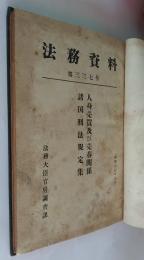 法務資料
第三三七号
人身売買及び売春関係
諸国刑法規定集
法務大臣官房調査課